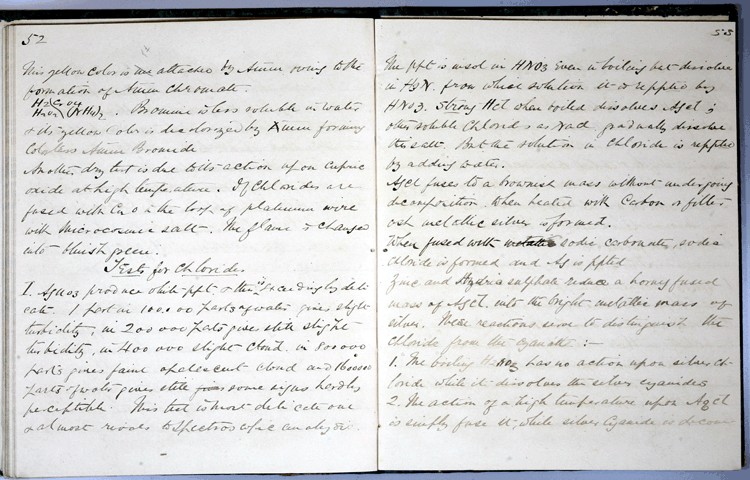 52
This yellow color is not attacked by Amm owing to the
formation of Amm Chromate
H2 Cr O4
Bromine is less soluble in water
& its yellow color is decolorized by Amm forming
Colorless Amm Bromide
Another dry test is due to its action upon Cupric
oxide at high temperature. If Chlorides are
fused with CuO in the loop of platinum wire
with microcosmic salt. The flame is changed
into bluish green.
Tests for Chlorides
1. AgNO3 produce white ppt & the is exceedingly deli
cate. 1 part in 100 000 parts of water gives slight
turbidity, in 200 000 parts gives still slight
turbidity, in 400 000 slight cloud. in 800 000
parts gives faint opalescent cloud and 1600000
parts of water gives still some signs hardly
perceptible. This test is most delicate one
& almost rivals to spectroscopic analysis.
53
The ppt is insol in HNO3 Even in boiling but dissolve
in H3N. from which solution it is reppted by
HNO3. Strong HCl when boiled dissolves AgCl;
other soluble Chlorides as NaCl gradually dissolve
this salt. But the solution in Chloride is reppted
by adding water.
AgCl fuses to a brownish mass without undergoing
decomposition. When heated with Carbon or filter
ash metallic silver is formed.
When fused with sodic carbonate, sodic
chloride is formed and Ag is ppted
Zinc and Hydric sulphate reduce a horny fused
mass of AgCl into the bright metallic mass of
silver. These reactions serve to distinguish the
Chloride from the Cyanide :—
1. The boiling has no action upon silver Ch-
loride while it dissolves the silver cyanides
2. The action of a high temperature upon AgCl
is simply fuse it, while silver Cyanide is decom